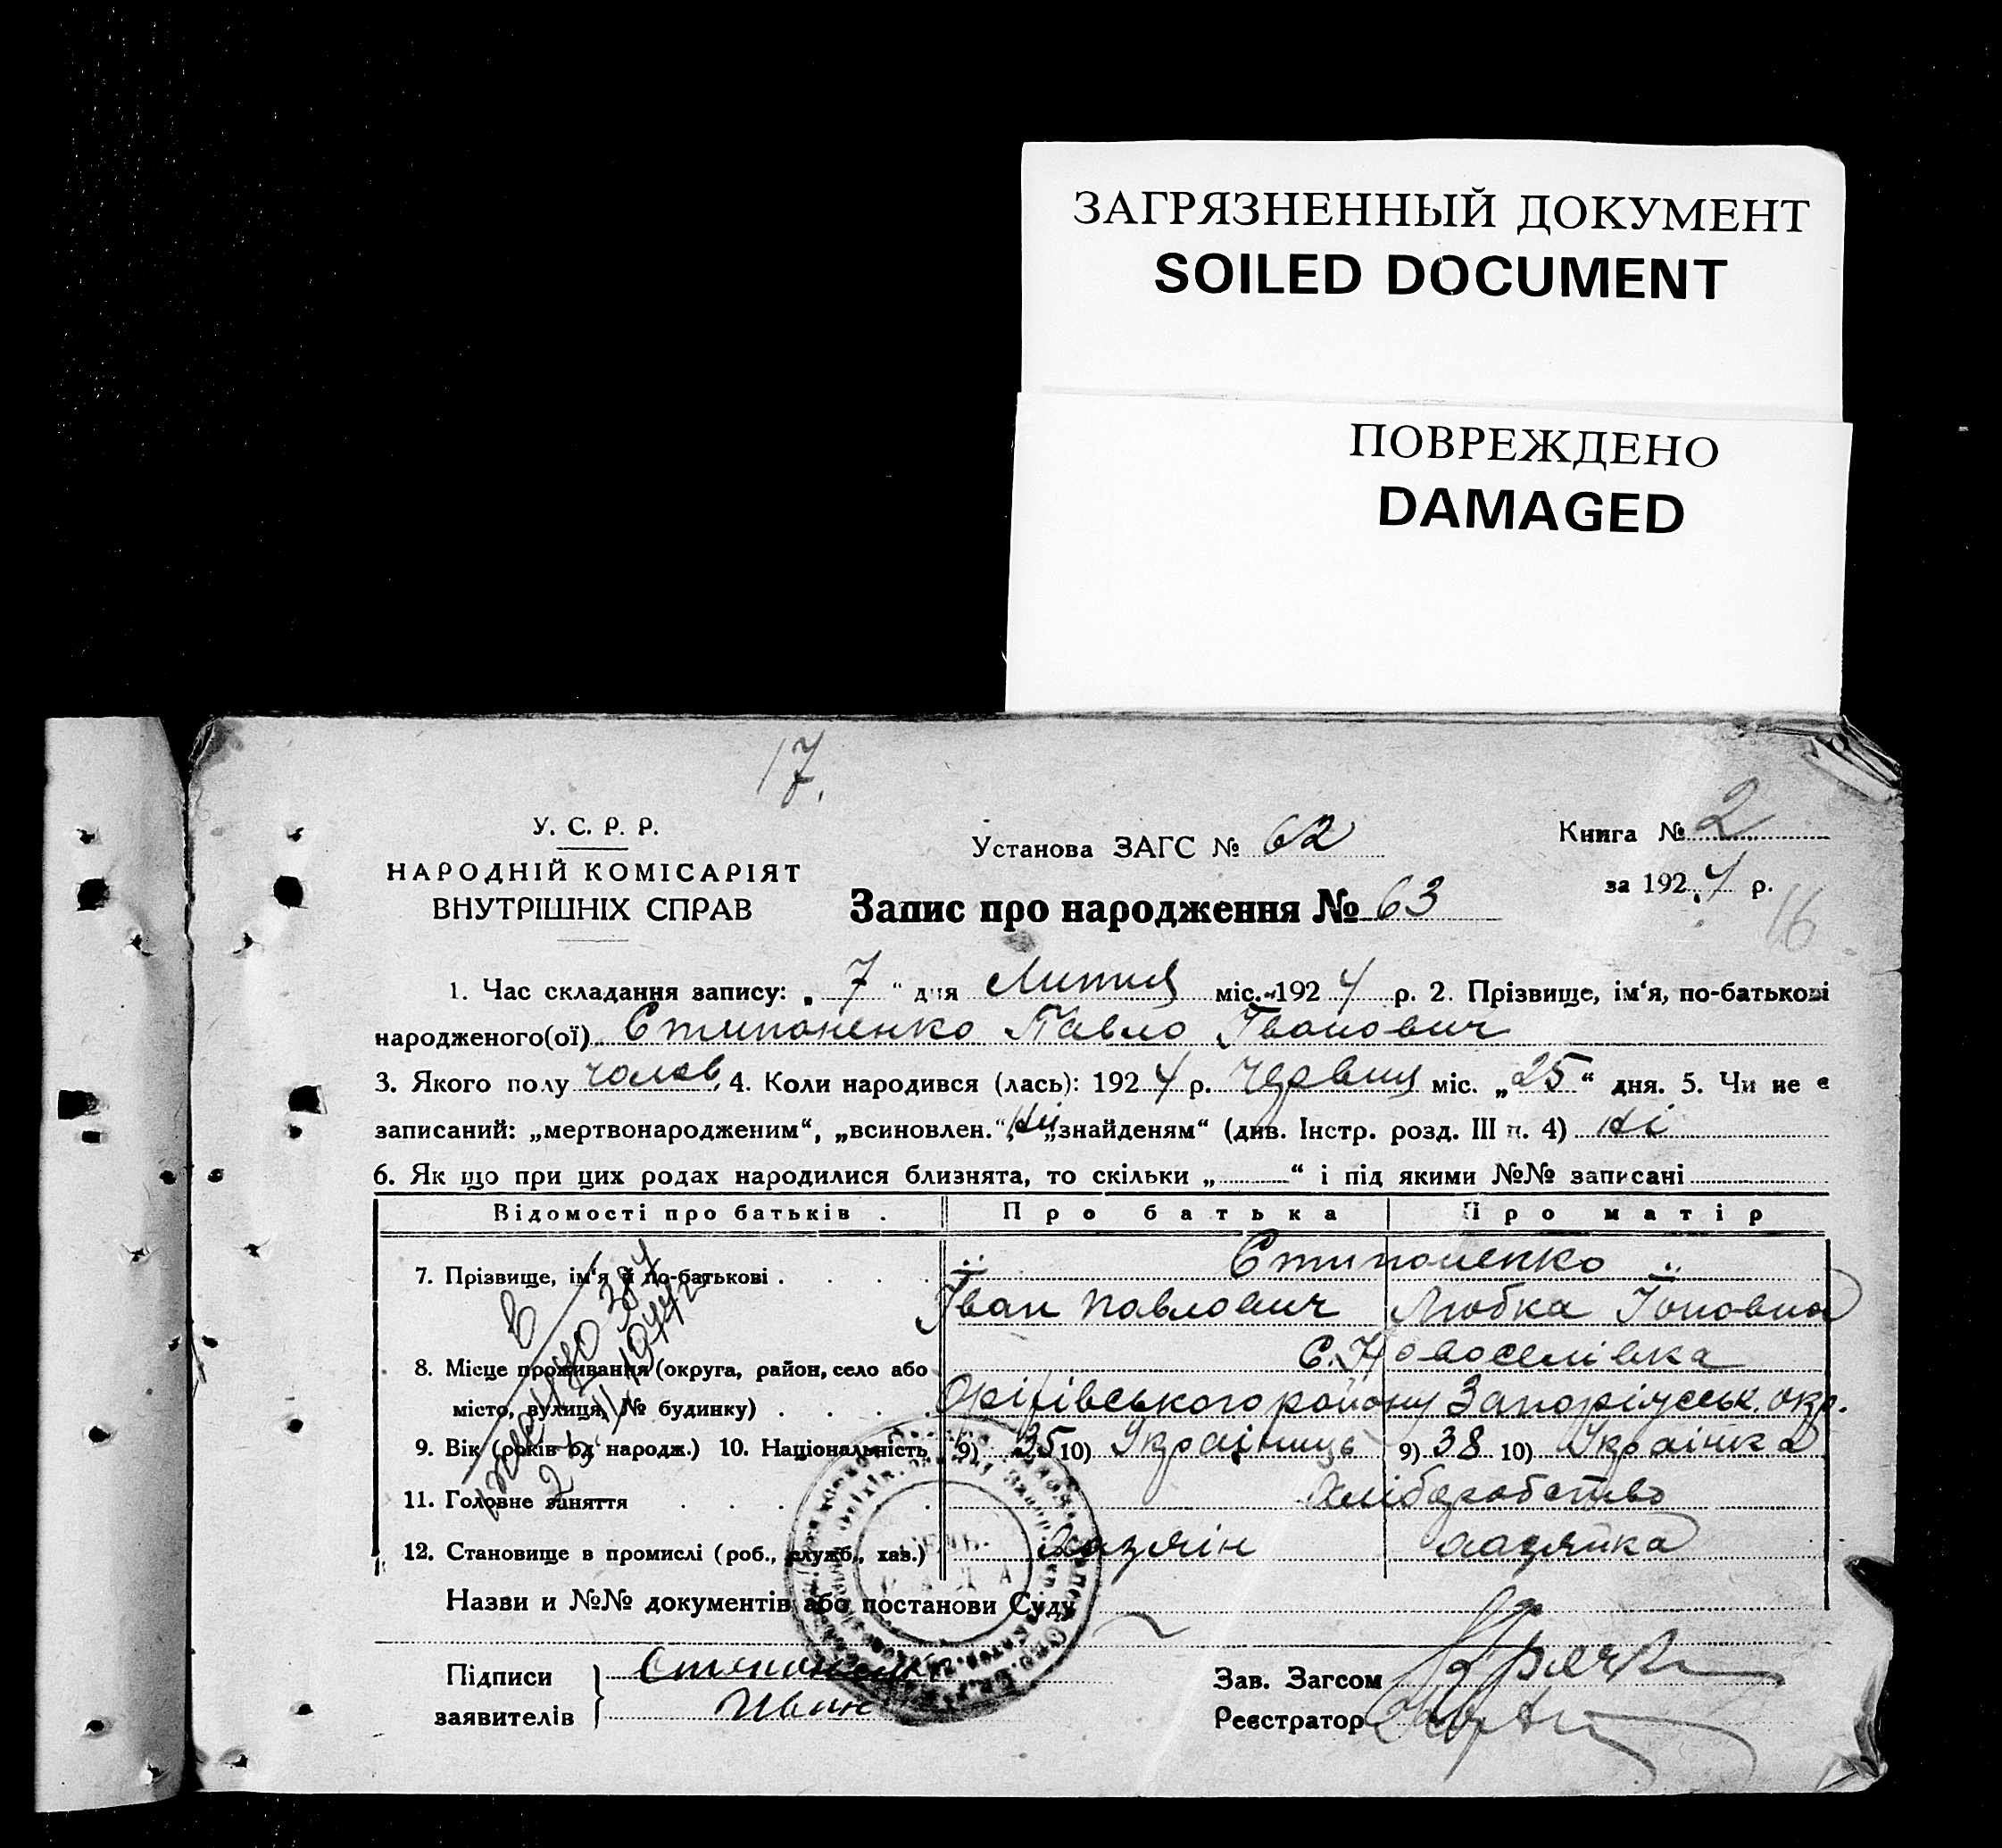 ЗАГРЯЗНЕННЫЙ ДОКУМЕНТ
SOILED DOCUMENT
ПОВРЕЖДЕНО
DAMAGED
17.
У. С. Р. Р.
НАРОДНІЙ КОМІСАРІЯТ
ВНУТРІШНІХ СПРАВ
Установа ЗАГС № 62
Книга № 2
за 1924 р.
Запис про народження № 63
16
1. Час складання запису: „ 7 “ дня Липця міс. 1924 р. 2. Прізвище, ім‘я, по-батькові
народженого(ої) Стипоненко Павло Іванович
3. Якого полу чолов, 4. Коли народився (лась): 1924 р. Червця міс. „ 25 “ дня. 5. Чи не є
записаний: „мертвонародженим“, „всиновлен.“, „знайденям“ (див. Інстр. розд. III п. 4) ні
6. Як що при цих родах народилися близнята, то скільки „ “ і під якими №№ записані
Відомості про батьків . Про батька Про матір
7. Прізвище, ім‘я й по-батькові . . . . Стипоненко
Іван Павлович Любка Іоновна
8. Місце проживання (округа, район, село або с. Новоселівка
місто, вулиця, № будинку) . . . . Оріхівського району Запоріжськ. окр.
9. Вік (років од народж.) 10. Національність 9) 35 10) Українець 9) 38 10) Українка
11. Головне заняття . . . . Хліборобство
12. Становище в промислі (роб., служб., хаз.) Хазяін хазяйка
Назви и №№ документів або постанови Суду
Підписи
заявителів
Иван
Зав. Загсом
Реєстратор